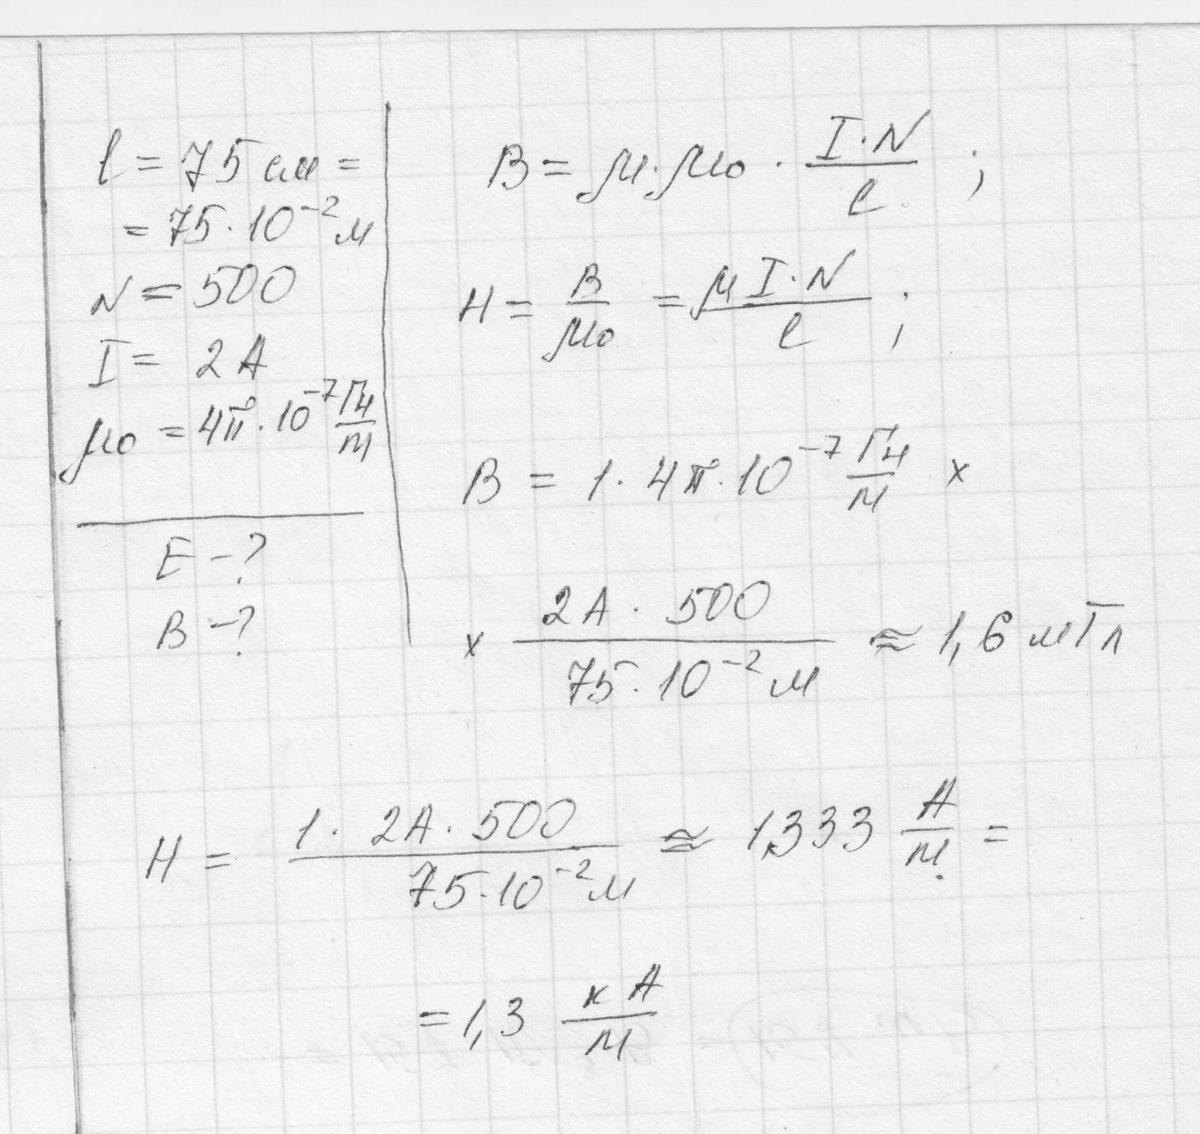 l = 75 см =
= 75·10⁻² м
N = 500
I = 2 А
μ₀ = 4π·10⁻⁷ Гн/м
E – ?
B – ?
B = μ·μ₀ · I·N/l ;
H = B/μ₀ = μ I·N/l ;
B = 1·4π·10⁻⁷ Гн/м ×
× 2А · 500/75·10⁻² м ≈ 1,6 мТл
H = 1· 2А · 500/75·10⁻² м ≈ 1333 А/м =
= 1,3 кА/м